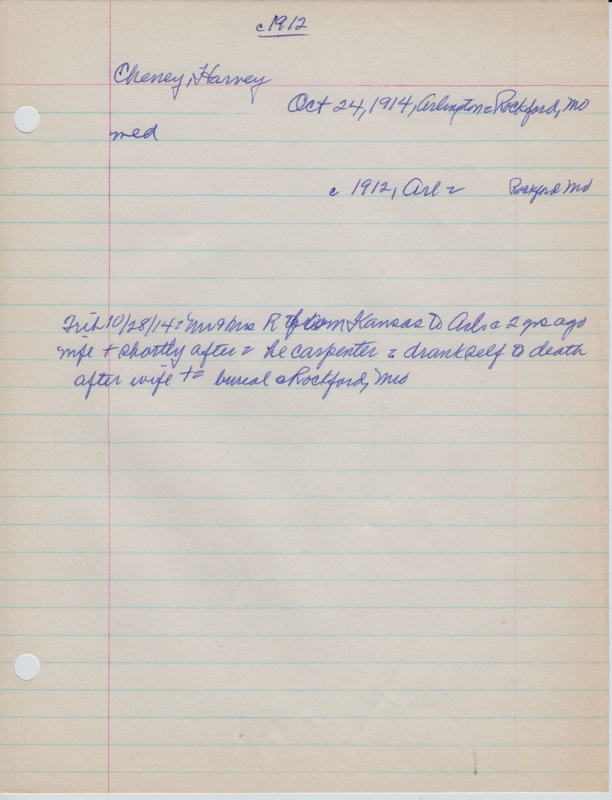 c 1912
Cheney, Harvey
Oct 24, 1914, Arlington = Rockford, Mo
med
c 1912, Arl = Rockford Mo
Trib 10/28/14 = Mr & Mrs R from Kansas to Arl = 2 yrs ago
wife + shortly after = he carpenter = drank self to death
after wife + = burial = Rockford, Mo